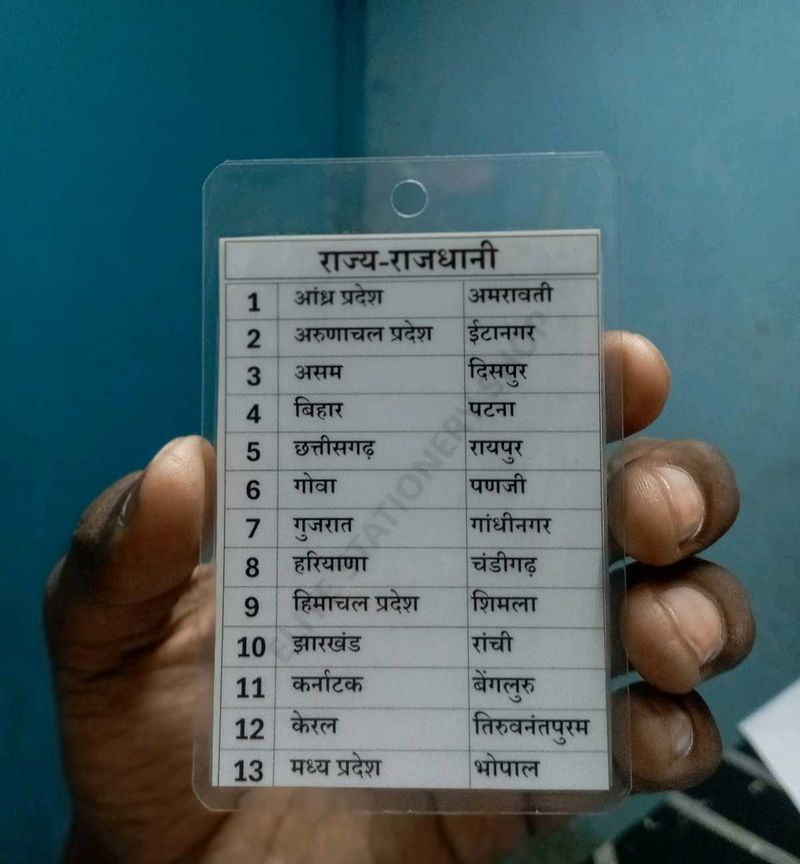 राज्य-राजधानी
1 आंध्र प्रदेश अमरावती
2 अरुणाचल प्रदेश ईटानगर
3 असम दिसपुर
4 बिहार पटना
5 छत्तीसगढ़ रायपुर
6 गोवा पणजी
7 गुजरात गांधीनगर
8 हरियाणा चंडीगढ़
9 हिमाचल प्रदेश शिमला
10 झारखंड रांची
11 कर्नाटक बेंगलुरु
12 केरल तिरुवनंतपुरम
13 मध्य प्रदेश भोपाल
STATIONERY SHOP